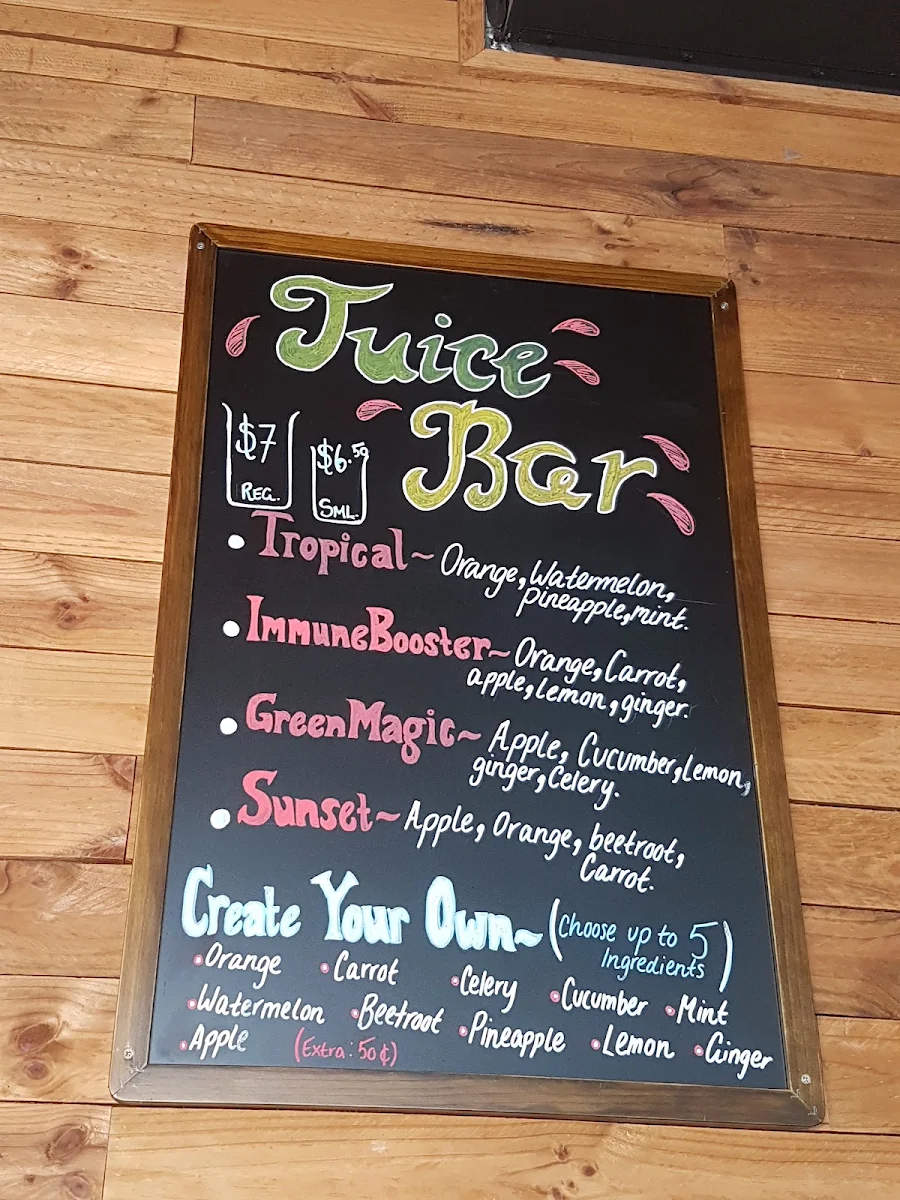 Juice
Bar
$7
REG.
$6.50
SML.
• Tropical ~ Orange, Watermelon,
pineapple, mint.
• ImmuneBooster ~ Orange, Carrot,
apple, lemon, ginger.
• GreenMagic ~ Apple, Cucumber, Lemon,
ginger, Celery.
• Sunset ~ Apple, Orange, beetroot,
Carrot.
Create Your Own ~ (Choose up to 5
Ingredients)
• Orange • Carrot • Celery • Cucumber • Mint
• Watermelon • Beetroot • Pineapple • Lemon • Ginger
• Apple (Extra: 50¢)